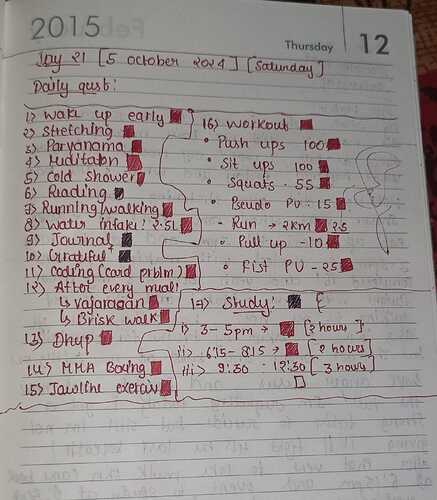 2015
Thursday 12
Day 21 [5 october 2024] [Saturday]
Daily qust:
1) wake up early
2) Stretching
3) Paryanama
4) Meditation
5) Cold shower
6) Reading
7) Running/walking
8) water intake: 2.5L
9) Journal
10) Gratiful
11) Coding (Card prblm)
12) After every meal:
↳ Vajarasan
↳ Brisk walk
13) Dhyp
14) MMA Boxing
15) Jawline exercis
16) workout
• Push ups 100
• Sit ups 100
• Squats - 55
• Pseudo PU : 15
• Run → 2KM 2.5
• Pull up - 10
• Fist PU - 25
17) Study:
i) 3 - 5pm → [2 hours]
ii) 6:15 - 8:15 → [2 hours]
iii) 9:30 - 12:30 [3 hours]